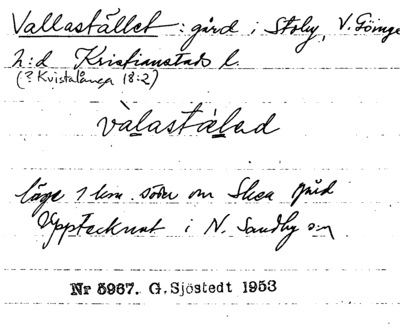 Vallastället : gård i Stoby, V. Göinge
h:d Kristianstads l.
(? Kvistalånga 18:2)
vàlastàlad
läge 1 km. söder om gård
Upptecknat i N. Sandby s:n
Nr 5967. G. Sjöstedt 1953